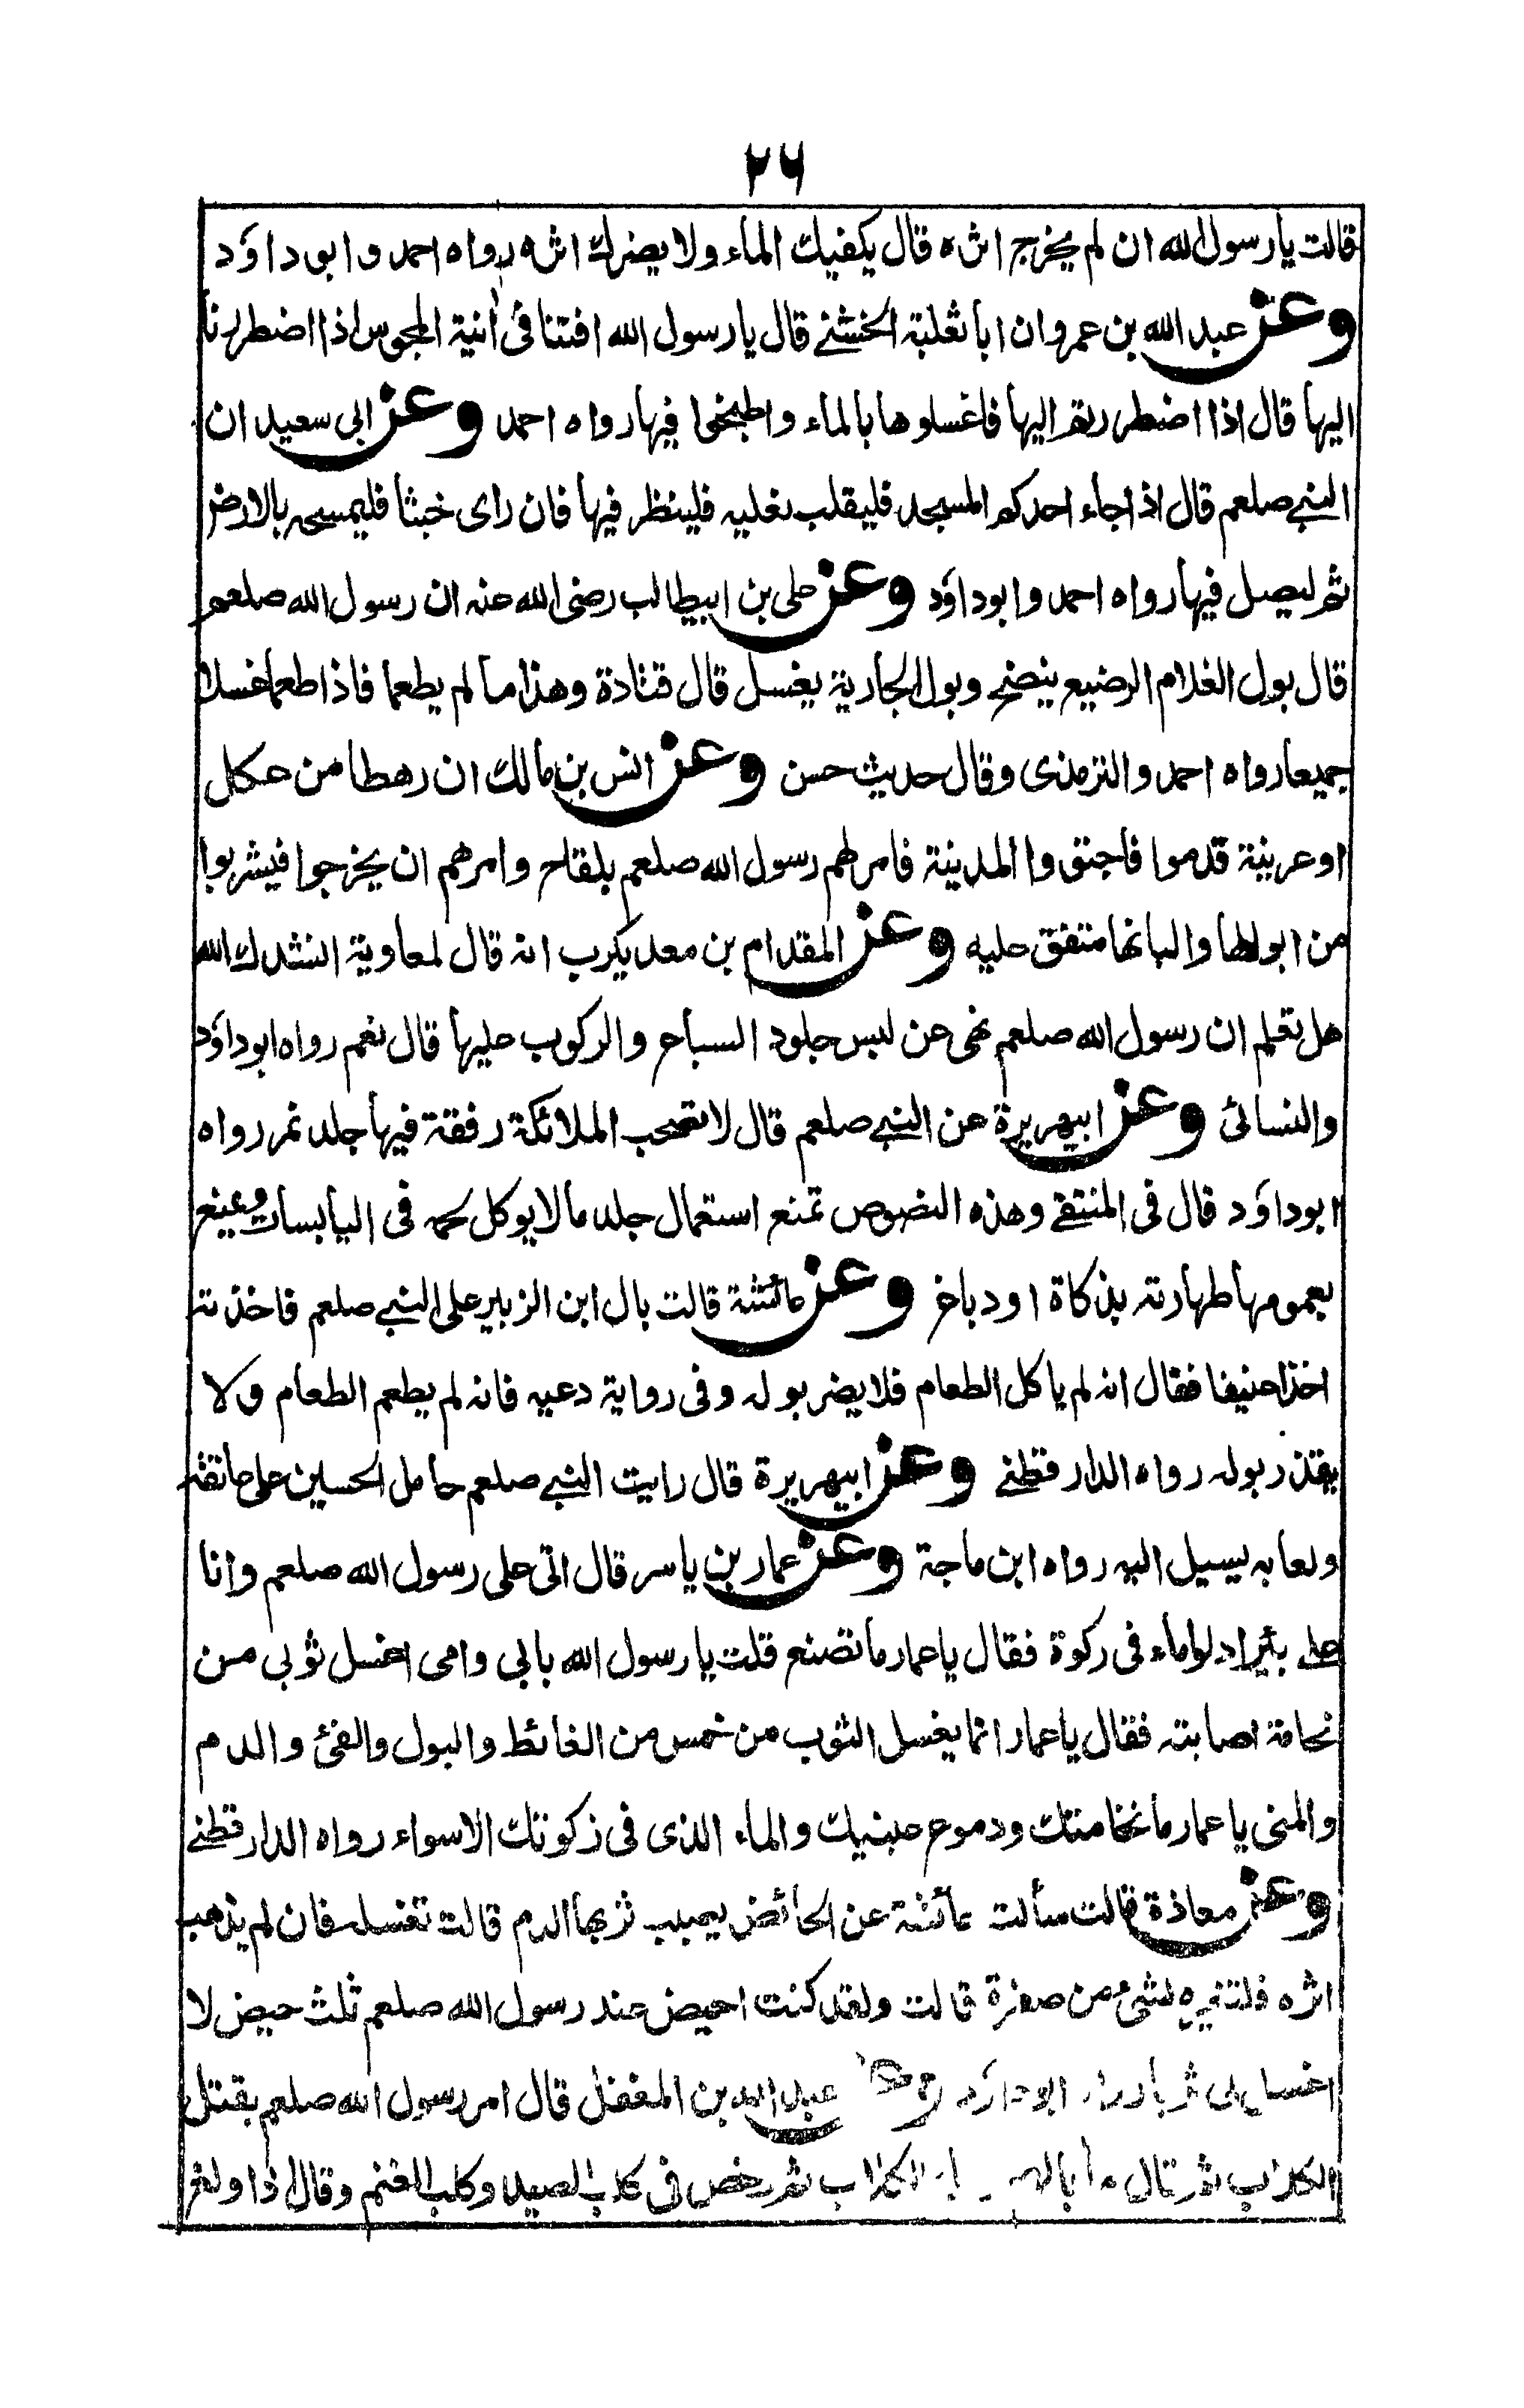 ٢٦
قالت يا رسول الله ان لم يخرج اثره قال يكفيك الماء ولا يضرك اثره رواه احمد وابو داؤد
وعن عبد الله بن عمرو ان ابا ثعلبة الخشني قال يا رسول الله افتنا في أنية المجوس اذا اضطررنا
اليها قال اذا اضطررتم اليها فاغسلوها بالماء واطبخوا فيها رواه احمد وعن ابى سعيد ان
النبي صلعم قال اذ اجاء احدكم المسجد فليقلب نعليه فلينظر فيها فان راى خبثا فليمسحه بالارض
ثم ليصل فيها رواه احمد وابو داؤد وعن على بن ابيطالب رضى الله عنه ان رسول الله صلعم
قال بول الغلام الرضيع ينضح وبول الجارية يغسل قال قتادة وهذا ما لم يطعما فاذا طعما غسلا
جميعا رواه احمد والترمذى وقال حديث حسن وعن انس بن مالك ان رهطا من عكل
او عرينة قدموا فاجتووا المدينة فامر لهم رسول الله صلعم بلقاح وامرهم ان يخرجوا فيشربوا
من ابوالها والبانها متفق عليه وعن المقدام بن معديكرب انه قال لمعاوية انشدك الله
هل تعلم ان رسول الله صلعم نهى عن لبس جلود السباع والركوب عليها قال نعم رواه ابو داؤد
والنسائى وعن ابيهريرة عن النبي صلعم قال لا تصحب الملائكة رفقة فيها جلد نمر رواه
ابو داؤد قال فى المنتقى وهذه النصوص تمنع استعمال جلد ما لا يوكل لحمه فى اليابسات وتمنع
بعمومها طهارته بذكاة او دباغ وعن عائشة قالت بال ابن الزبير على النبي صلعم فاخذته
اخذا عنيفا فقال انه لم ياكل الطعام فلا يضر بوله وفى رواية دعيه فانه لم يطعم الطعام ولا
يقذر بوله رواه الدارقطنى وعن ابيهريرة قال رايت النبي صلعم حامل الحسين على عاتقه
ولعابه يسيل اليه رواه ابن ماجة وعن عمار بن ياسر قال اتى على رسول الله صلعم وانا
على بئر ادلوا ماء فى ركوة فقال يا عمار ما تصنع قلت يا رسول الله بابى وامى اغسل ثوبى من
نخامة اصابته فقال يا عمار انما يغسل الثوب من خمس من الغائط والبول والقئ والدم
والمنى يا عمار ما نخامتك ودموع عينيك والماء الذى فى زكوتك الا سواء رواه الدارقطنى
وعن معاذة قالت سألت عائشة عن الحائض يصيب ثوبها الدم قالت تغسله فان لم يذهب
اثره فلتغيره بشئ من صفرة قالت ولقد كنت احيض عند رسول الله صلعم ثلث حيض لا
اغسل لى ثوبا رواه ابو داؤد وعن عبد الله بن المغفل قال امر رسول الله صلعم بقتل
الكلاب ثم قال ما بالهم الكلاب ثم رخص فى كلاب الصيد وكلب الغنم وقال اذا ولغ